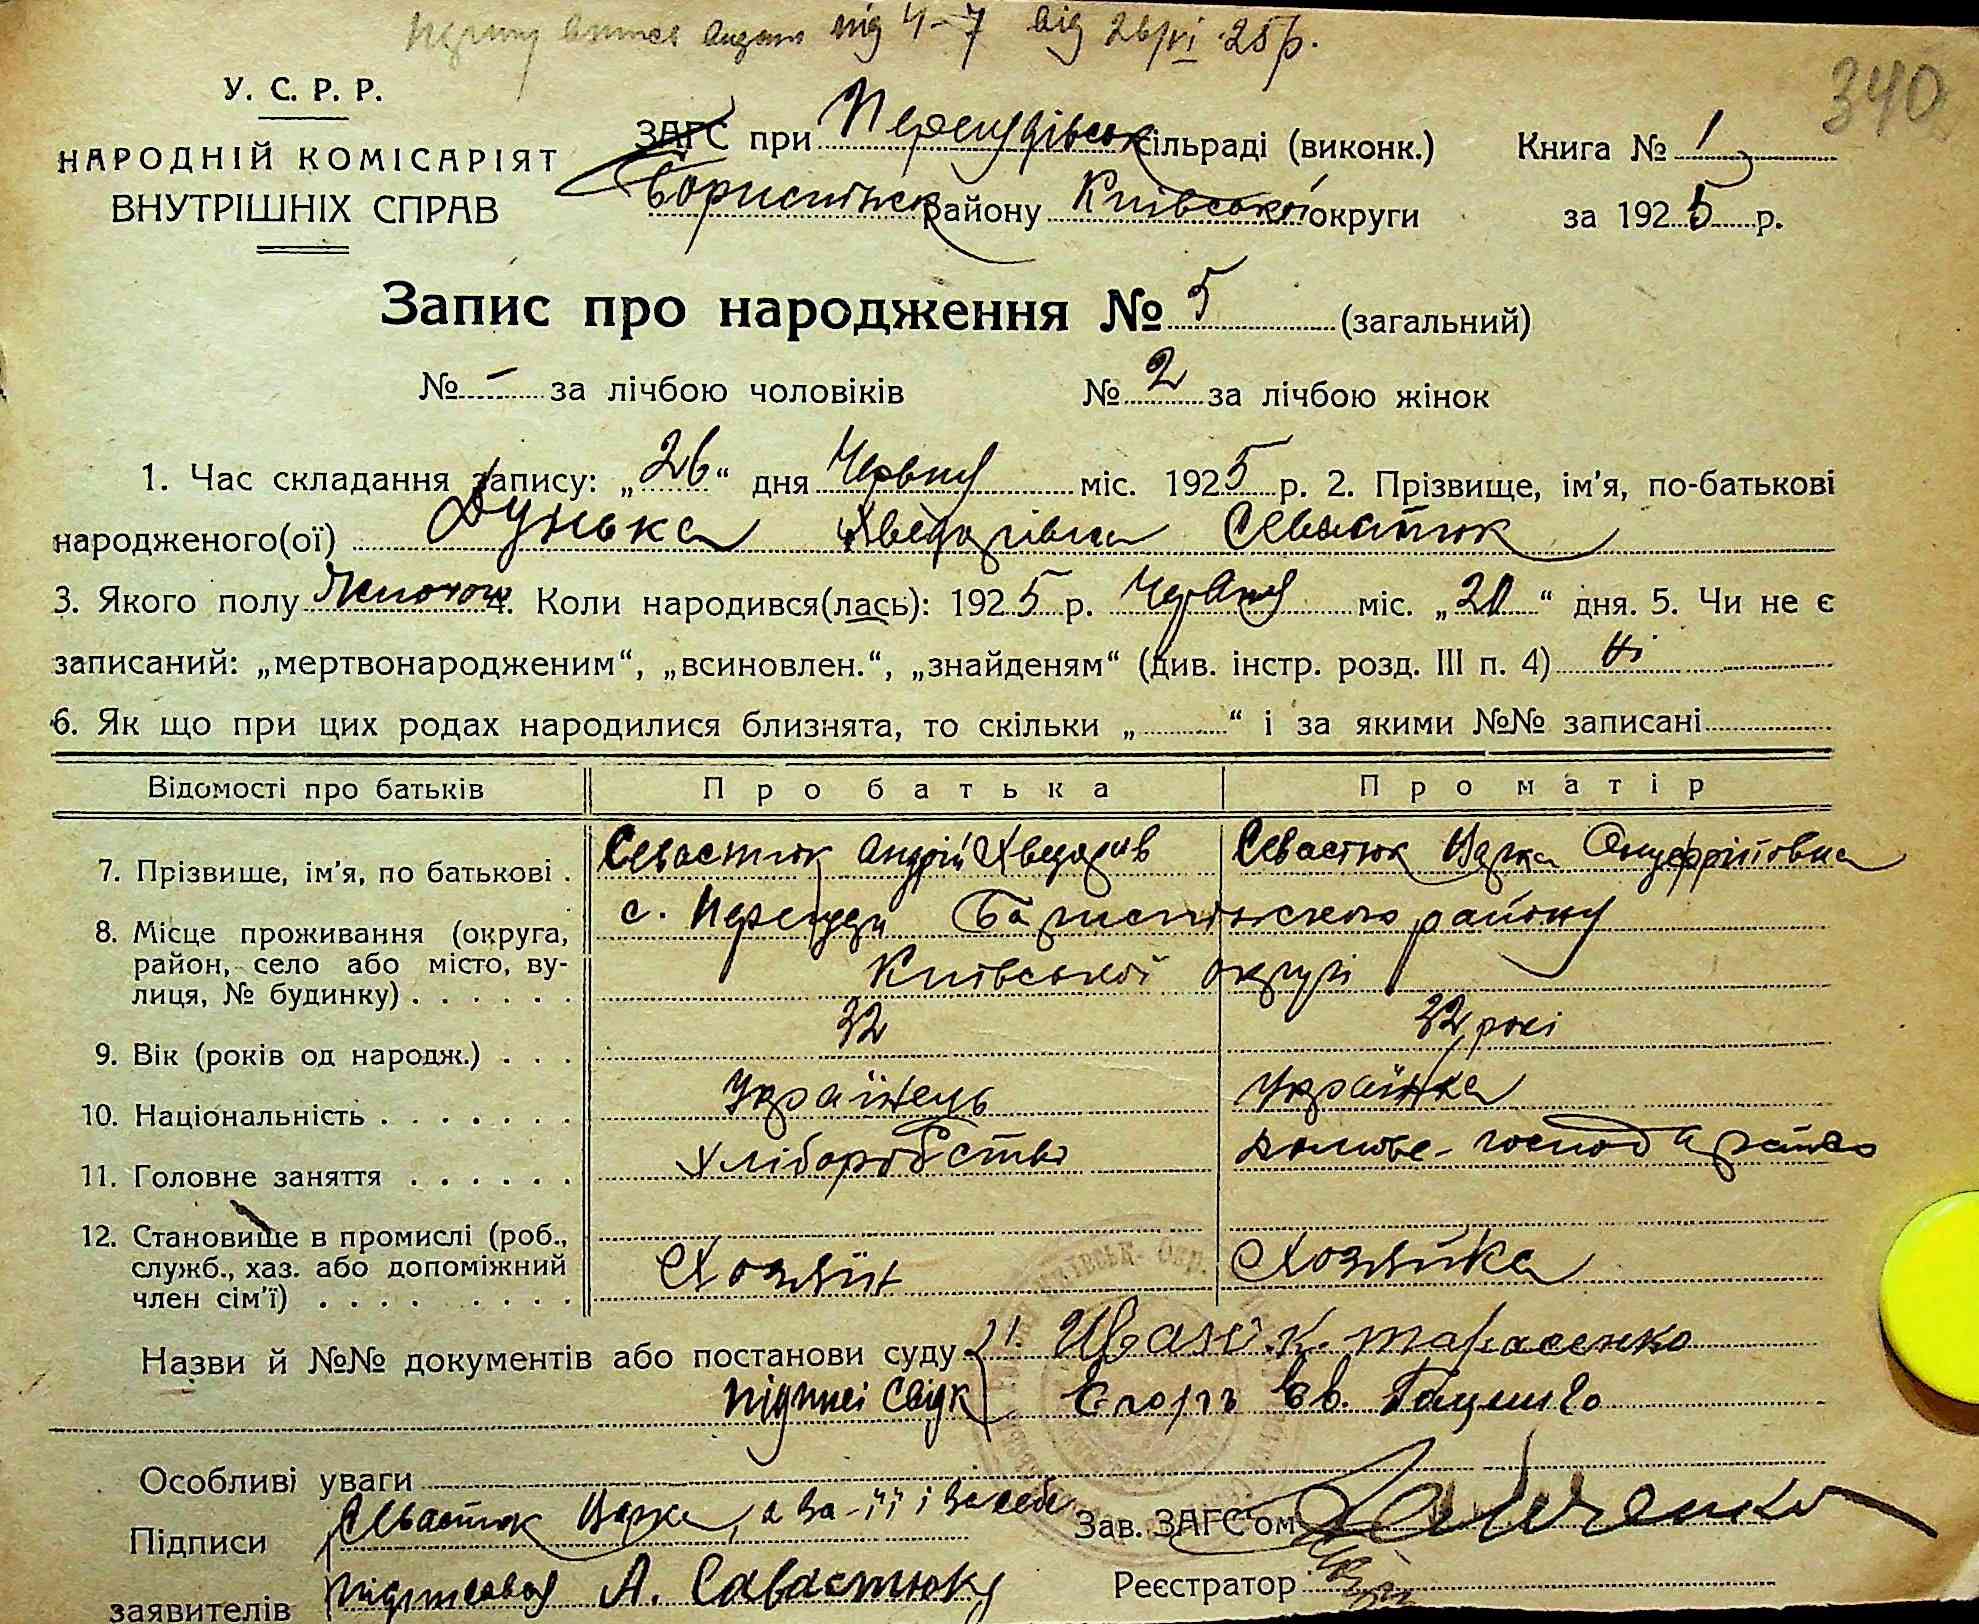 від 26/VI 25 р.
340
У. С. Р. Р.
НАРОДНІЙ КОМІСАРІЯТ
ВНУТРІШНІХ СПРАВ
ЗАГС при сільраді (виконк.)
району Київської округи
Книга № 1
за 1925 р.
Запис про народження № 5 (загальний)
№ - за лічбою чоловіків № 2 за лічбою жінок
1. Час складання запису: „26“ дня Червня міс. 1925 р. 2. Прізвище, ім'я, по-батькові
народженого(ої) Дунька Севастюк
3. Якого полу 4. Коли народився(лась): 1925 р. Червня міс. „20“ дня. 5. Чи не є
записаний: „мертвонародженим“, „всиновлен.“, „знайденям“ (див. інстр. розд. III п. 4) Ні
6. Як що при цих родах народилися близнята, то скільки „ “ і за якими №№ записані
Відомості про батьків Про батька Про матір
7. Прізвище, ім'я, по батькові . Севастюк Андрій Хведорів Севастюк
8. Місце проживання (округа,
район, село або місто, вулиця, № будинку) . . . . . . с. району
Київської округи
9. Вік (років од народж.) . . . 32 32 рокі
10. Національність . . . . . . . Українець Українка
11. Головне заняття . . . . . . Хліборобство домове-господарство
12. Становище в промислі (роб.,
служб., хаз. або допоміжний
член сім'ї) . . . . . . . . . Хозяїн Хозяйка
Назви й №№ документів або постанови суду 1. Иван К. Тарасенко
підписі свідк Егоръ Ев.
Особливі уваги
Підписи Севастюк
Зав. ЗАГС'ом
заявителів А. Савастюк
Реєстратор